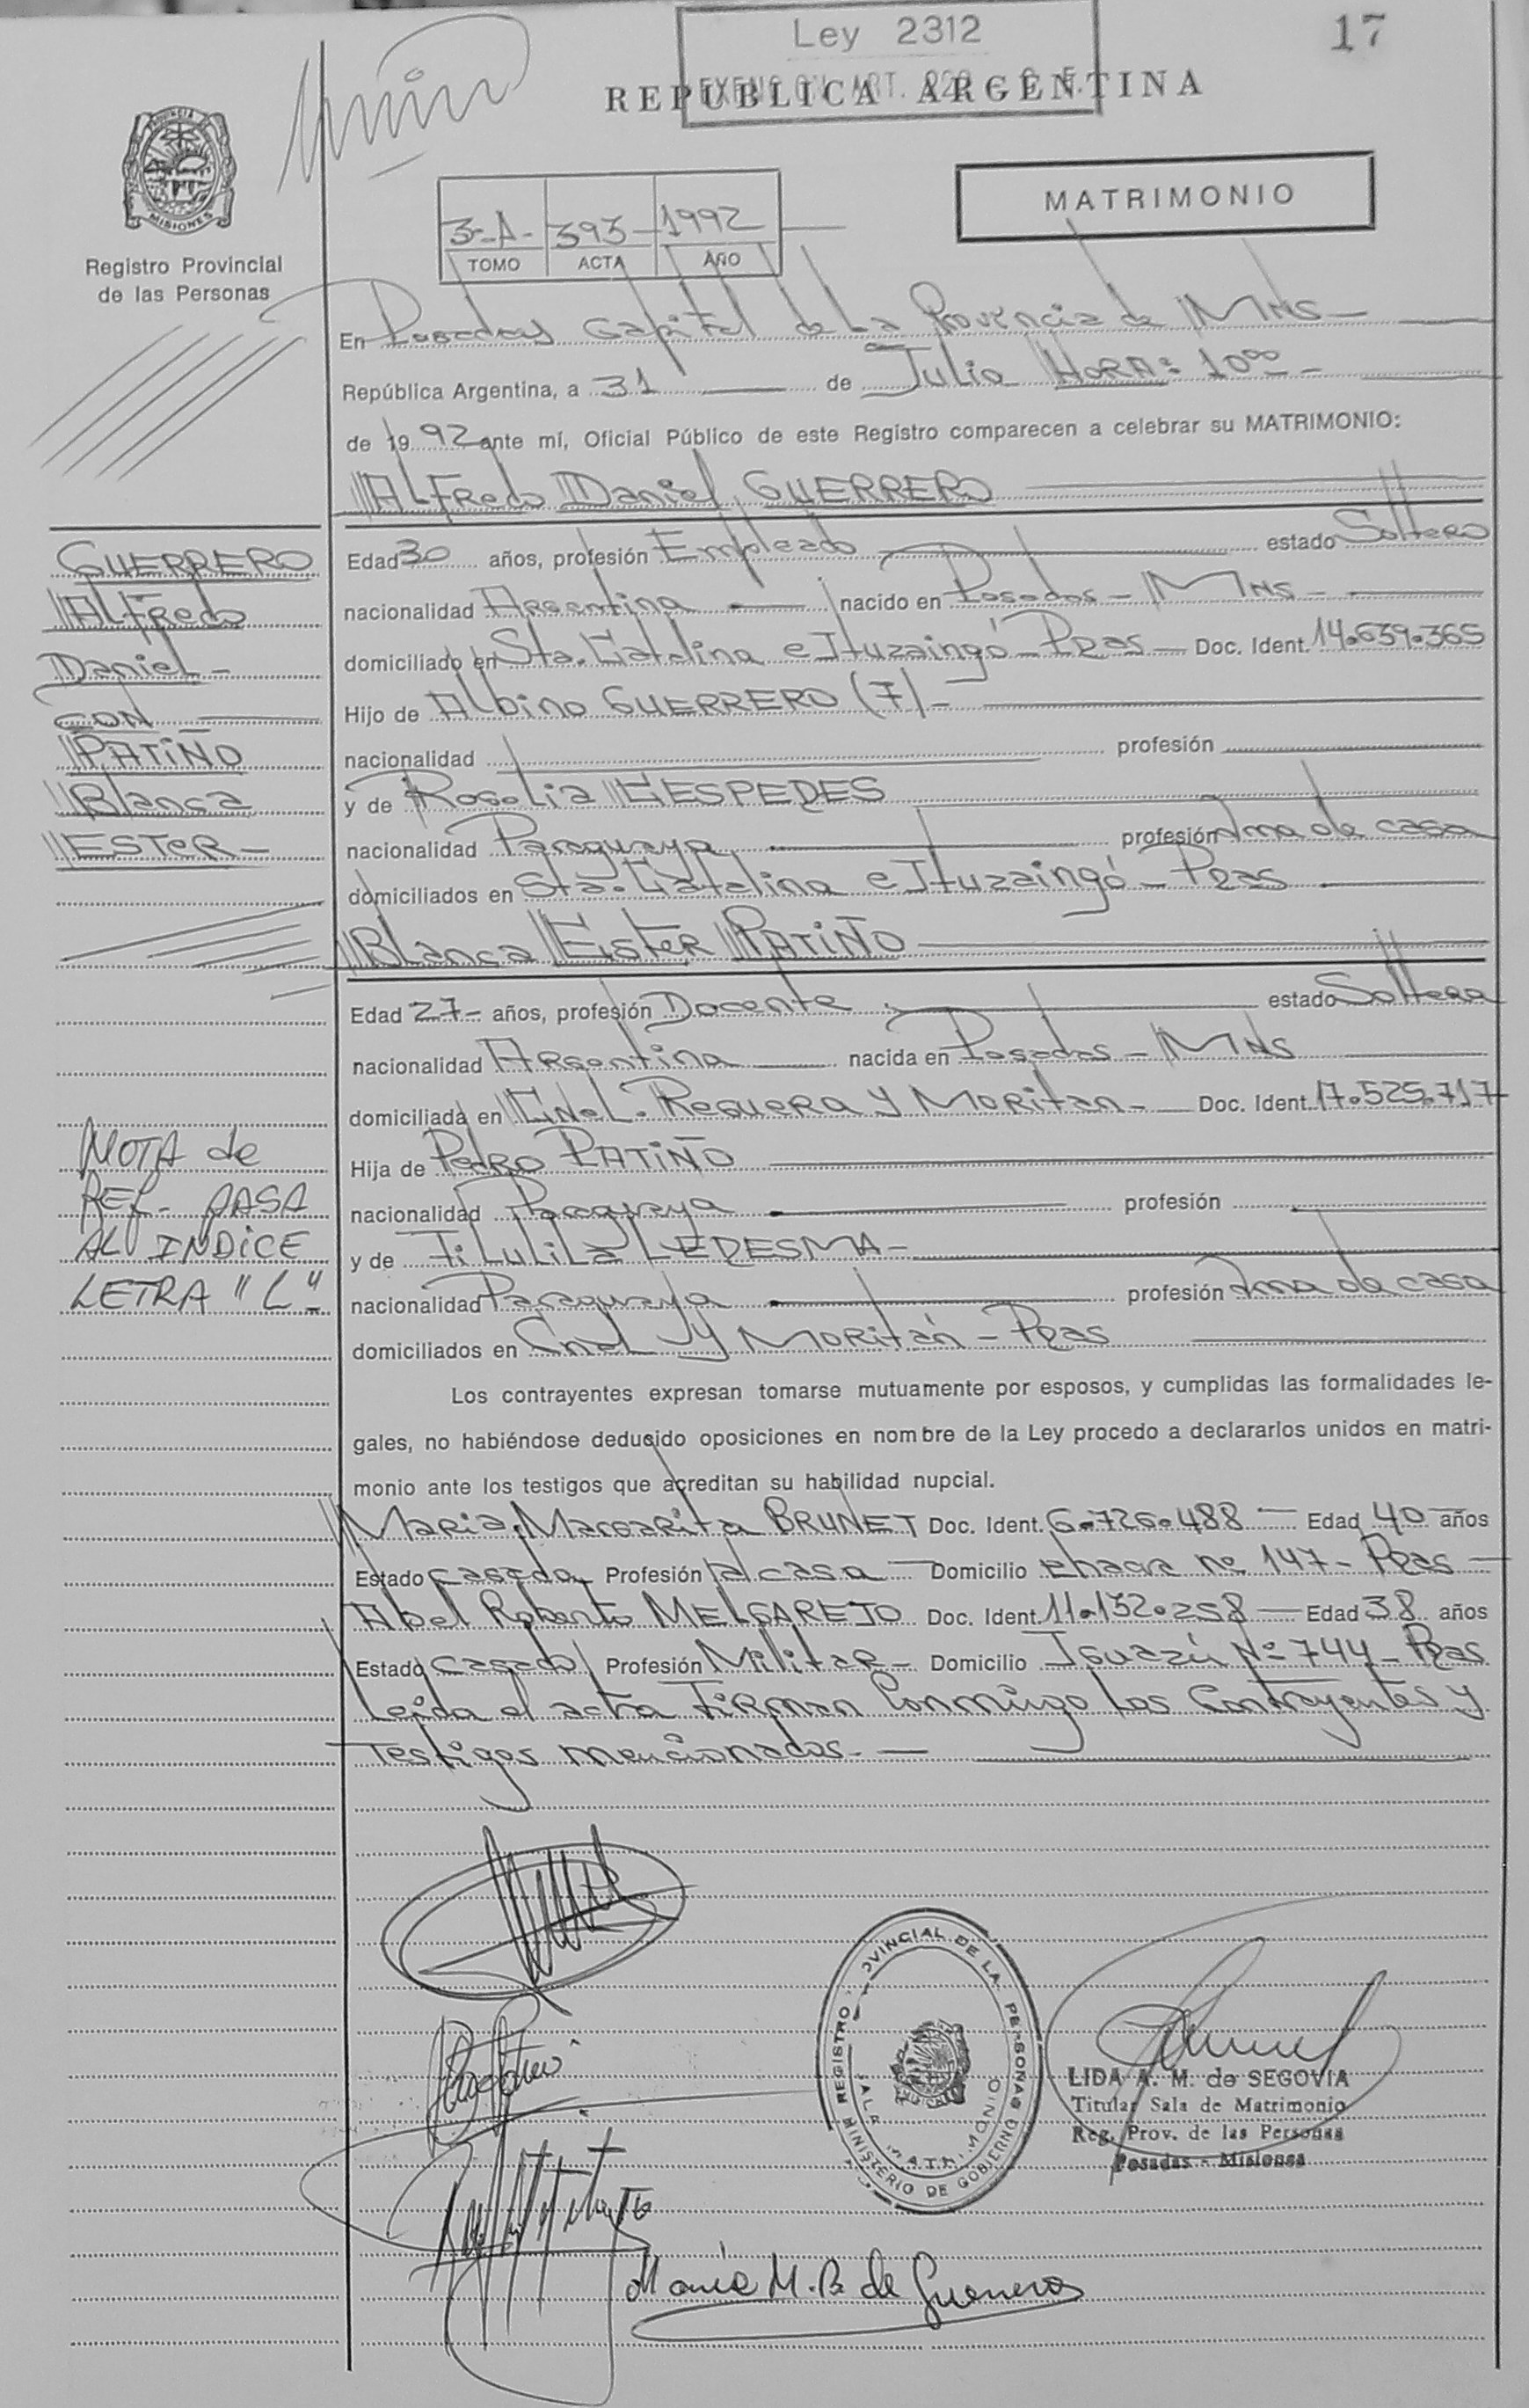 Ley 2312
17
REPUBLICA ARGENTINA
MISIONES
Registro Provincial
de las Personas
MATRIMONIO
3-A- 393- 1992
TOMO ACTA AÑO
En Posadas Capital de La Provincia de Mnes-
República Argentina, a 31 de Julio HORA: 10⁰⁰-
de 1992 ante mí, Oficial Público de este Registro comparecen a celebrar su MATRIMONIO:
Alfredo Daniel GUERRERO
Edad 30 años, profesión Empleado estado Soltero
nacionalidad Argentina nacido en Posadas - Mnes-
domiciliado en Sta. Catalina e Ituzaingó - Pdas - Doc. Ident. 14.639.365
Hijo de Albino GUERRERO (7)-
nacionalidad profesión
y de Rosalia CESPEDES
nacionalidad Paraguaya profesión Ama de casa
domiciliados en Sta. Catalina e Ituzaingó - Pdas
Blanca Ester PATIÑO
Edad 27- años, profesión Docente estado Soltera
nacionalidad Argentina nacida en Posadas - Mnes
domiciliada en Cnel. Reguera y Moritan- Doc. Ident. 17.525.717
Hija de Pedro PATIÑO
nacionalidad Paraguaya profesión
y de LEDESMA-
nacionalidad Paraguaya profesión Ama de casa
domiciliados en Cnel y Moritán - Pdas
Los contrayentes expresan tomarse mutuamente por esposos, y cumplidas las formalidades le-
gales, no habiéndose deducido oposiciones en nombre de la Ley procedo a declararlos unidos en matri-
monio ante los testigos que acreditan su habilidad nupcial.
Maria Margarita BRUNET Doc. Ident. 6.726.488 - Edad 40 años
Estado casada Profesión a/casa - Domicilio nº 147- Pdas -
Abel Roberto MELGAREJO Doc. Ident. 11.132.258 - Edad 38 años
Estado casado Profesión Militar - Domicilio Iguazú Nº 744 - Pdas
Leida el acta Firman Conmigo Los Contrayentes y
Testigos mencionados. -
GUERRERO
Alfredo
Daniel -
CON
PATIÑO
Blanca
ESTER -
NOTA de
REF. PASA
AL INDICE
LETRA "L".
REGISTRO PROVINCIAL DE LA PERSONAS
SALA MATRIMONIO
MINISTERIO DE GOBIERNO
LIDA A. M. de SEGOVIA
Titular Sala de Matrimonio
Reg. Prov. de las Personas
Posadas - Misiones
Maria M. B. de Guerrero